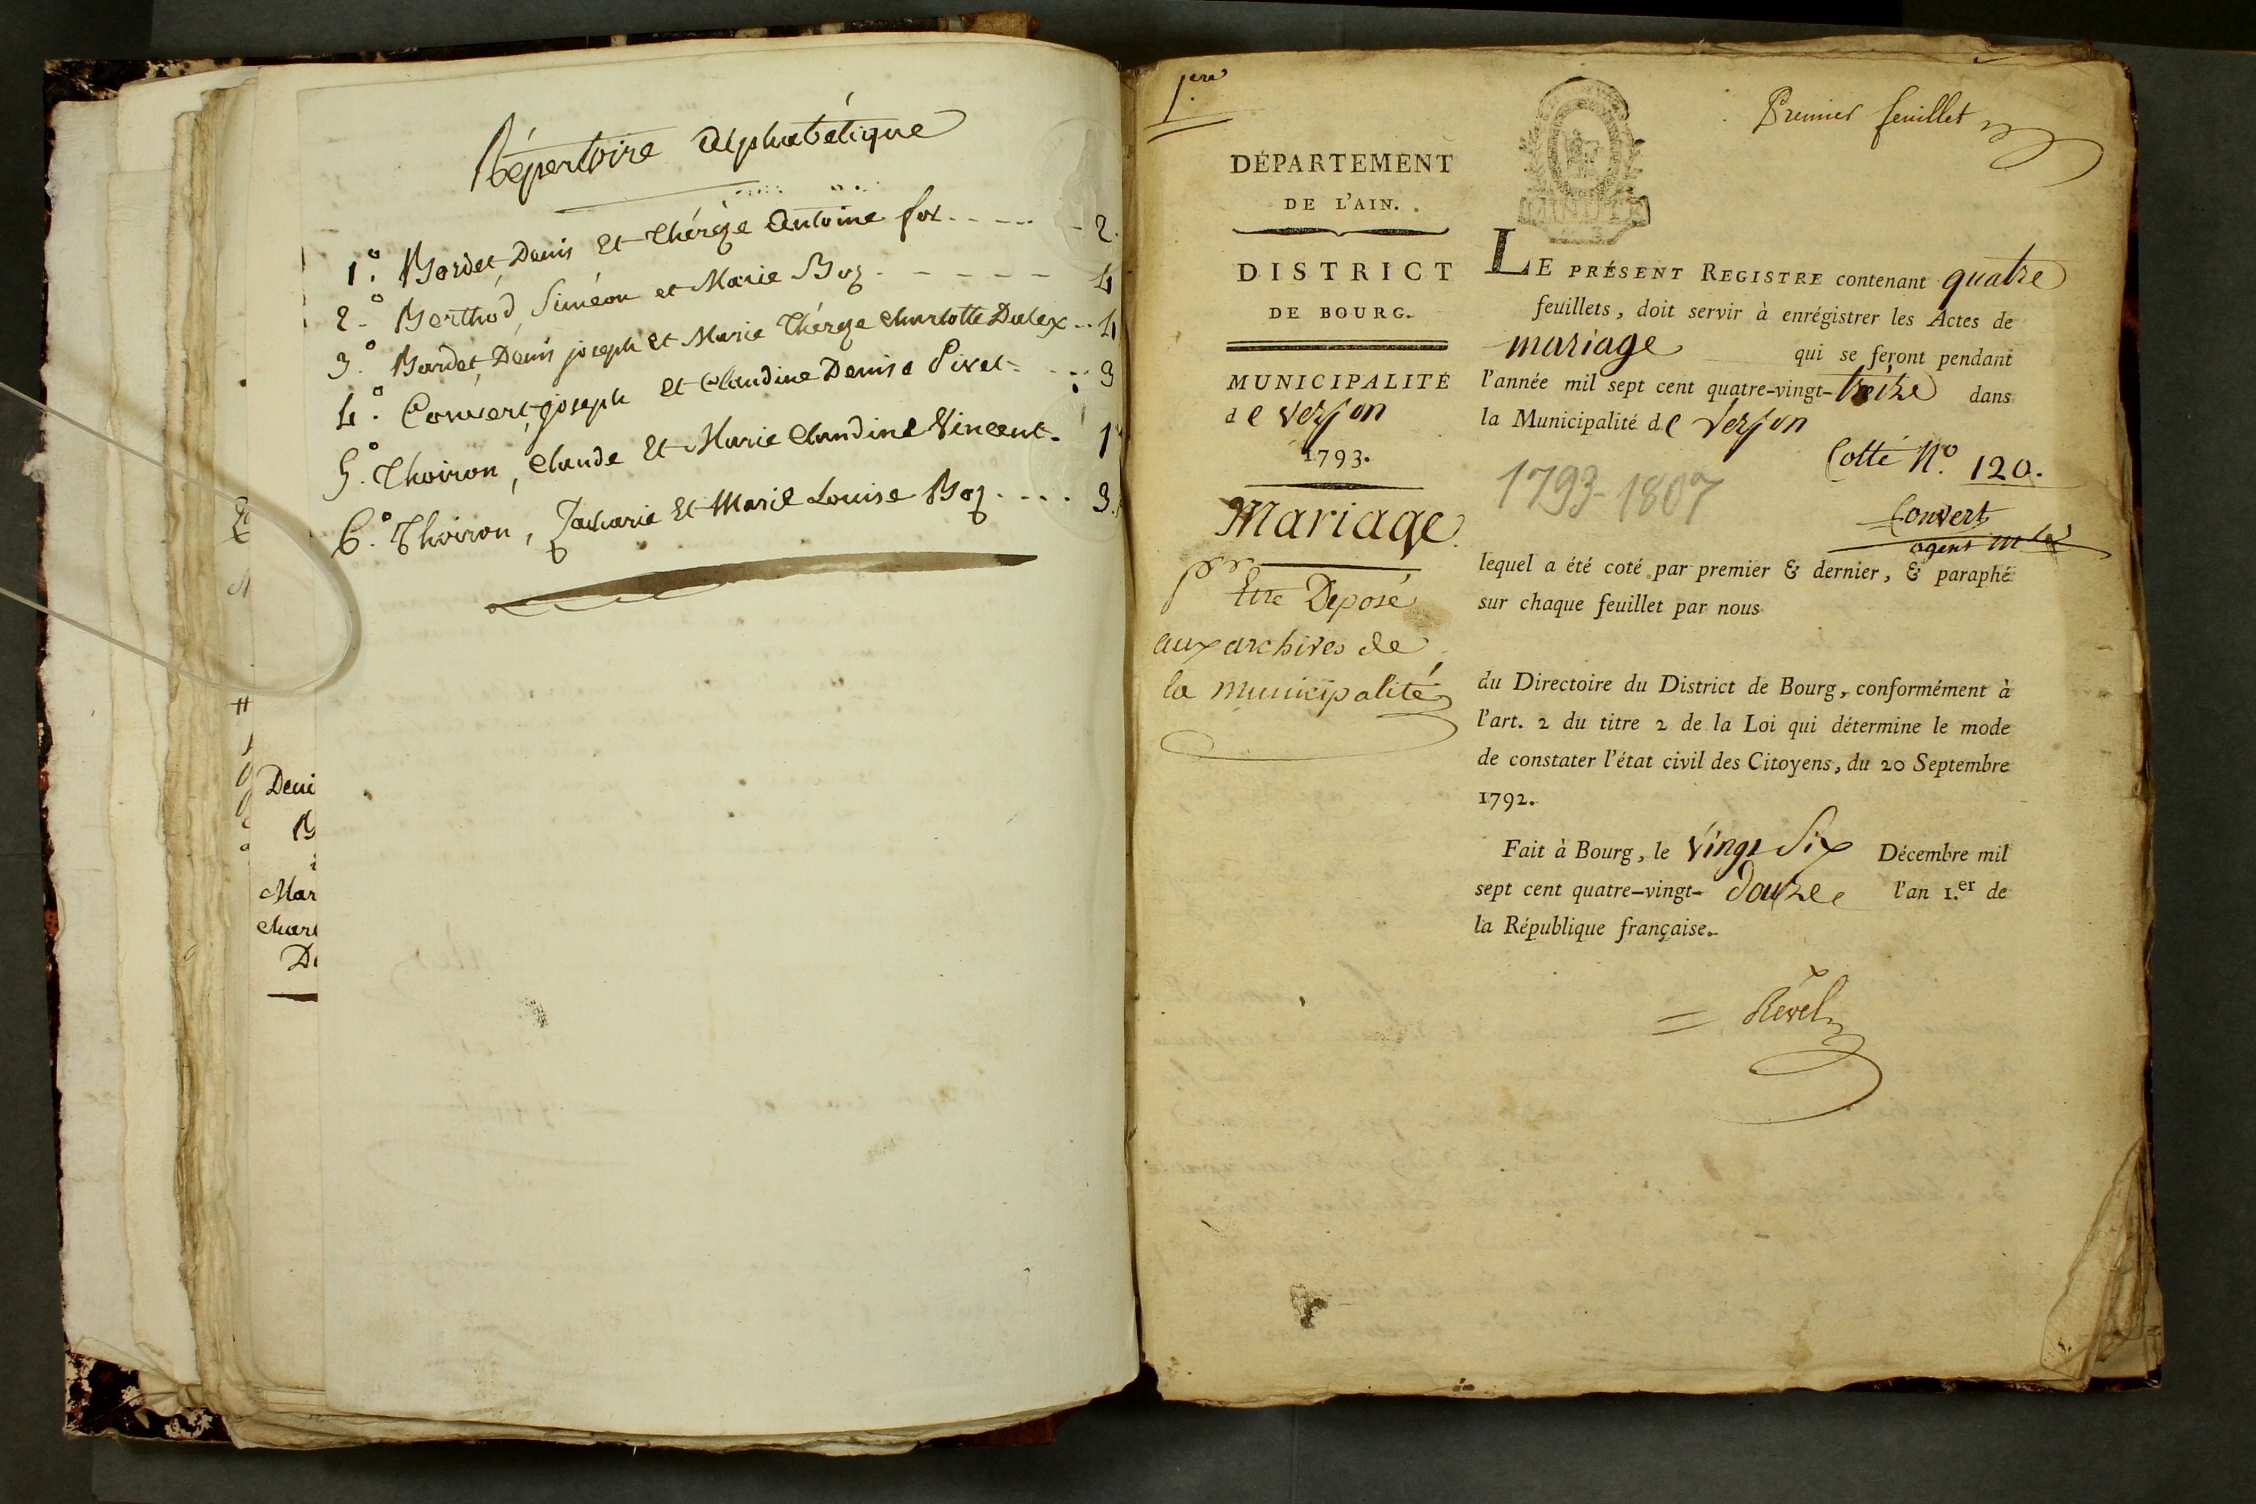 Répertoire Alphabétique
1.° Bordet, Denis Et Thérèze Antoine fot - - - - - 2.
2.° Berthod Siméon et Marie Boz - - - - - - 4
3.° Bordet, Denis joseph et Marie Thérèze charlotte Dalex - - 4
4.° Convert, joseph et Claudine Denise Pivet - - - 3
5.° Thoiron, Claude Et Marie Claudine Vincent - 1
6.° Thoiron, Zacharie Et Marie Louise Boz - - - - 3.
Deni
B
Mar
char
Da
1.ere
Premier feuillet
DÉPARTEMENT
DE L'AIN.
DISTRICT
DE BOURG.
MUNICIPALITÉ
de Verjon
1793.
Mariage
pr Etre Deposé
aux archives de
la municipalité
LE PRÉSENT REGISTRE contenant quatre
feuillets, doit servir à enrégistrer les Actes de
mariage qui se feront pendant
l'année mil sept cent quatre-vingt-treize dans
la Municipalité de Verjon
Cotté N.° 120.
1793-1807
Convert
agent
lequel a été coté par premier & dernier, & paraphé
sur chaque feuillet par nous
du Directoire du District de Bourg, conformément à
l'art. 2 du titre 2 de la Loi qui détermine le mode
de constater l'état civil des Citoyens, du 20 Septembre
1792.
Fait à Bourg, le vingt Six Décembre mil
sept cent quatre-vingt-douze l'an 1.er de
la République française.
Revel